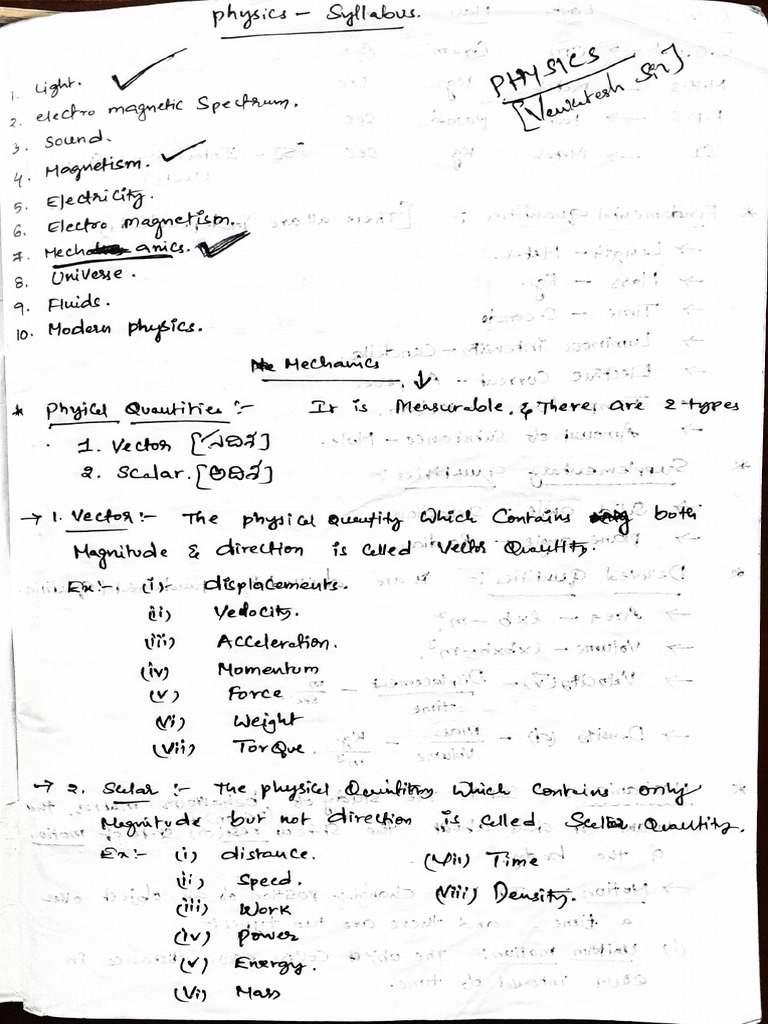 physics - Syllabus.
PHYSICS
[Venkatesh Sir]
1. Light.
2. electro magnetic Spectrum.
3. Sound.
4. Magnetism.
5. Electricity.
6. Electro magnetism.
7. Mechanics.
8. Universe.
9. Fluids.
10. Modern physics.
Mechanics
* Phyical Quantities :- It is Measurable, & There, are 2-types
1. Vector [ಸದಿಶ]
2. Scalar. [ಅದಿಶ]
→ 1. Vector :- The physical quantity which contains both
Magnitude & direction is called Vector Quantity.
Ex:- (i) displacements.
(ii) Velocity.
(iii) Acceleration.
(iv) Momentum
(v) Force
(vi) Weight
(vii) Torque.
→ 2. Scalar :- The physical Quantity which contains only
Magnitude but not direction is called Scalar Quantity.
Ex:- (i) distance.
(ii) Speed.
(iii) Work
(iv) Power
(v) Energy.
(vi) Mass
(vii) Time
(viii) Density.